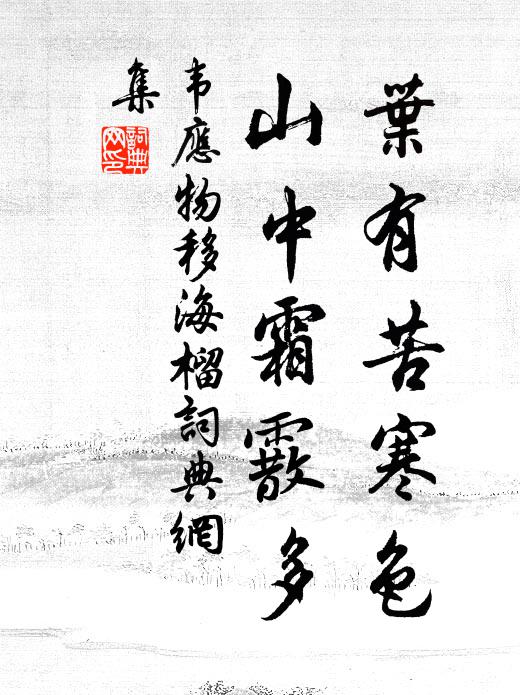 葉有苦寒色
山中霜霰多
韦應物移海榴詞典網
集
詞典
网印